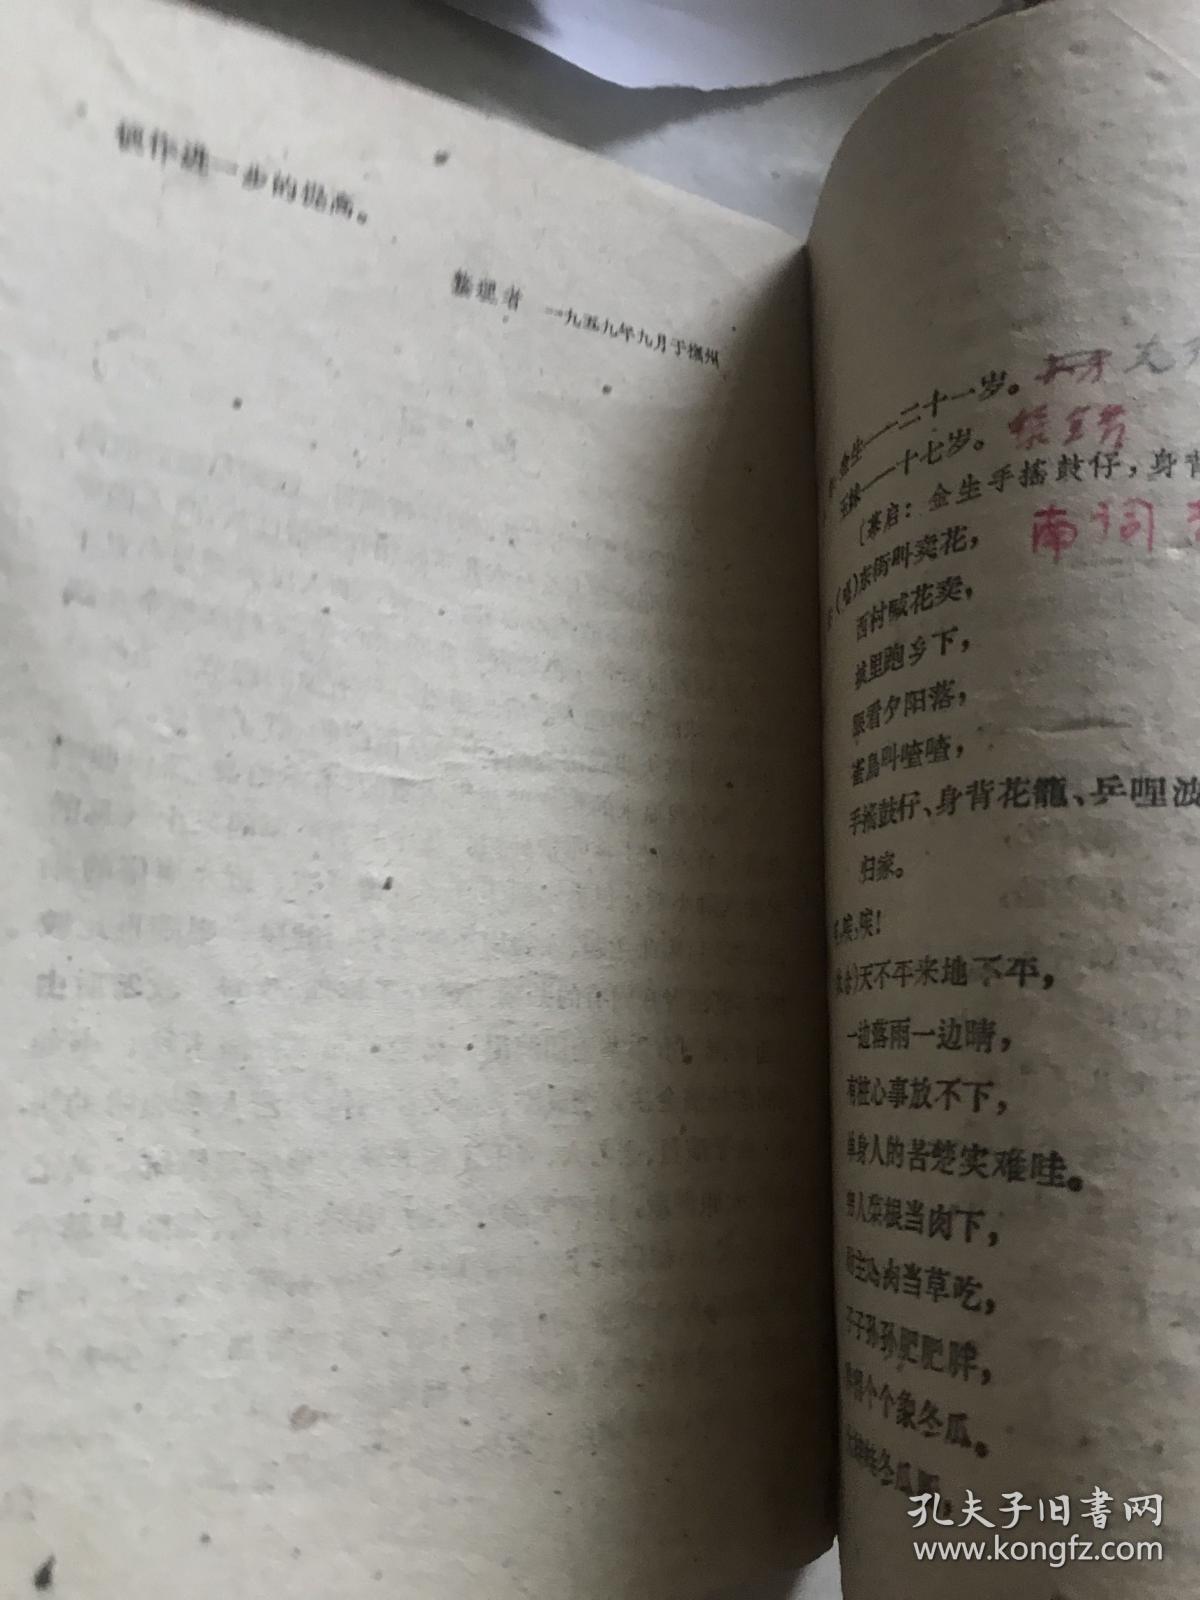 作进一步的提高。
整理者 一九五九年九月于撫州
金生——二十一岁。
玉妹——十七岁。
(幕启：金生手搖鼓仔，身背
南词
(唱)东街叫卖花，
西村喊花卖，
城里跑乡下，
眼看夕阳落，
雀鳥叫喳喳，
手搖鼓仔、身背花籠、乒哩波
归家。
咳，咳！
)天不平来地不平，
一边落雨一边晴，
有桩心事放不下，
单身人的苦楚实难哇。
穷人菜根当肉下，
肉当草吃，
子子孙孙肥肥胖，
个个象冬瓜。
冬瓜肥，
孔夫子旧书网
www.kongfz.com